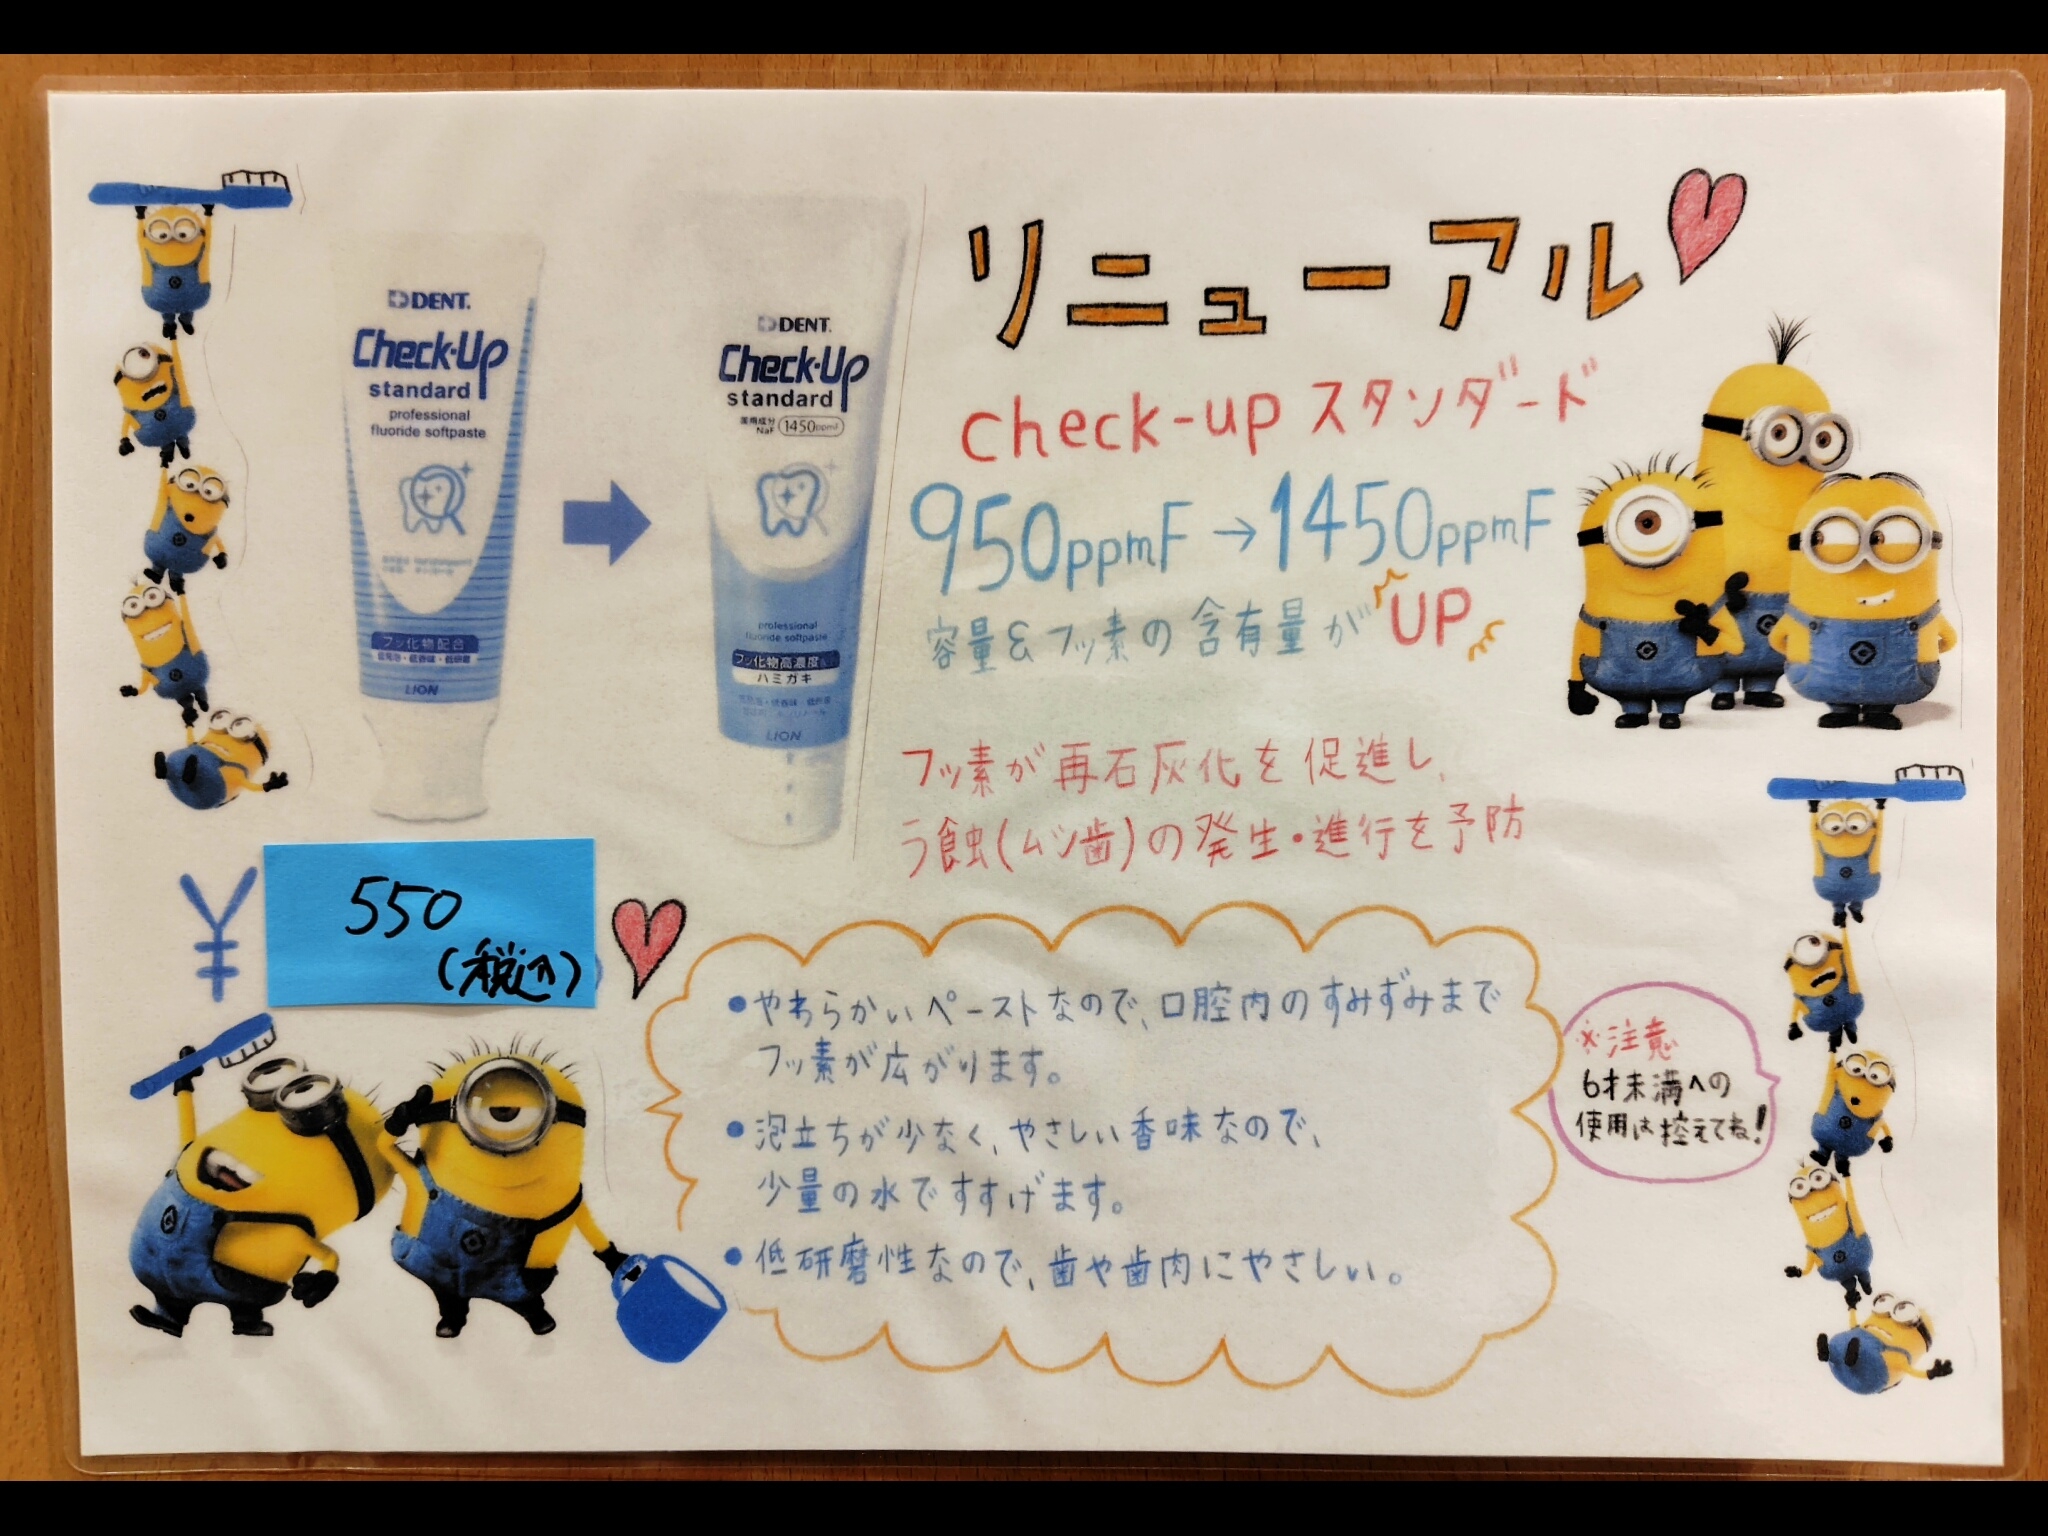 リニューアル
check-up スタンダード
950ppmF→1450ppmF
容量&フッ素の含有量が UP
フッ素が再石灰化を促進し、
う蝕(ムシ歯)の発生・進行を予防
DENT.
Check-Up
standard
professional
fluoride softpaste
フッ化物配合
低発泡・低香味・低研磨
LION
DENT.
Check-Up
standard
薬用成分
NaF 1450ppmF
professional
fluoride softpaste
フッ化物高濃度
ハミガキ
低発泡・低香味・低研磨
LION
¥550
(税込)
•やわらかいペーストなので、口腔内のすみずみまで
フッ素が広がります。
•泡立ちが少なく、やさしい香味なので、
少量の水ですすげます。
•低研磨性なので、歯や歯肉にやさしい。
※注意
6才未満への
使用は控えてね!